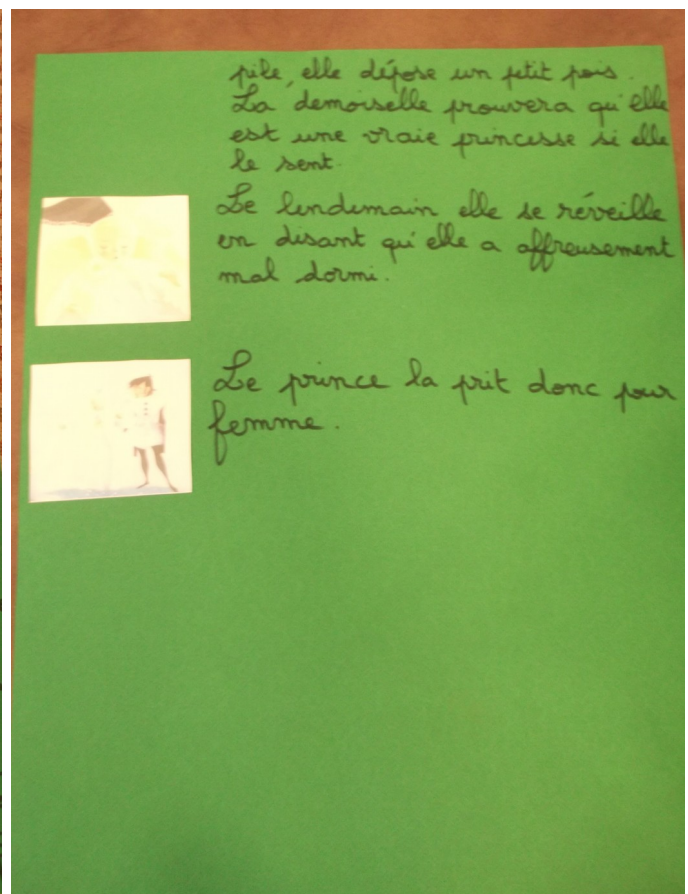 pile, elle dépose un petit pois.
La demoiselle prouvera qu'elle
est une vraie princesse si elle
le sent.
Le lendemain elle se réveille
en disant qu'elle a affreusement
mal dormi.
Le prince la prit donc pour
femme.